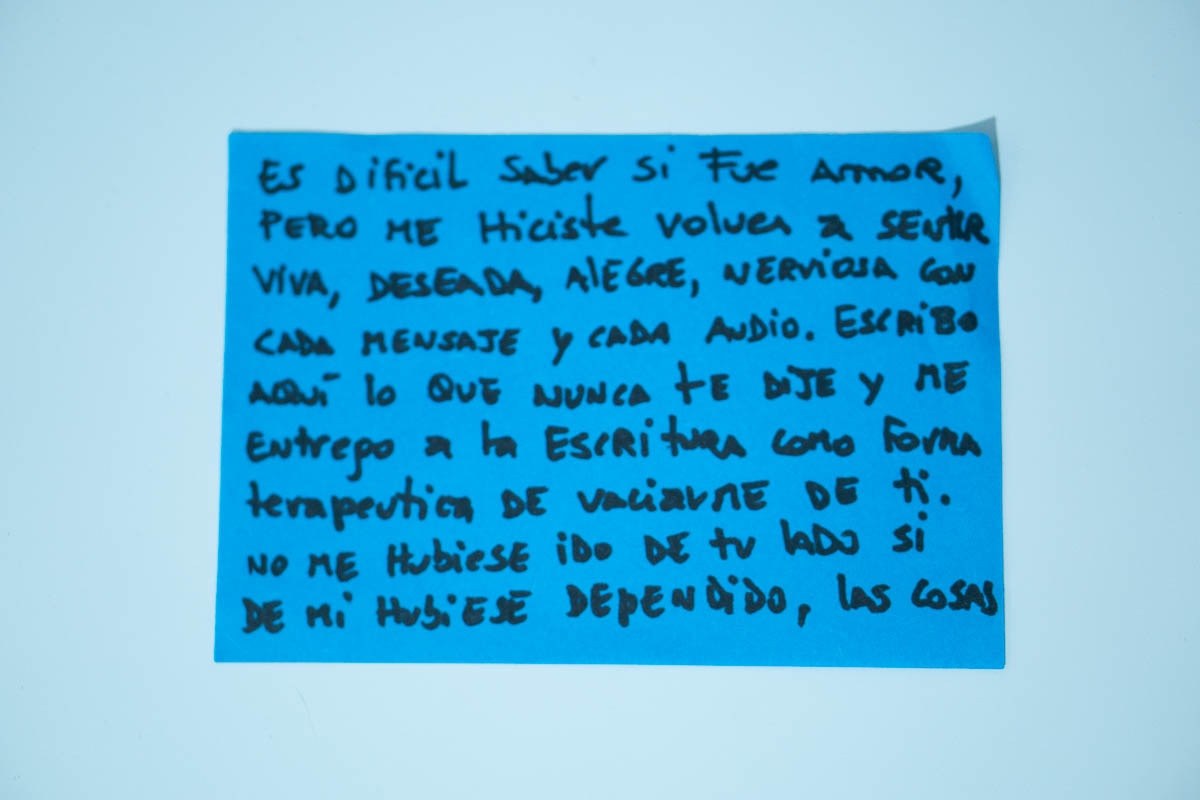 ES DIFICIL SABER SI FUE AMOR,
PERO ME HICISTE VOLVER A SENTIR
VIVA, DESEADA, ALEGRE, NERVIOSA CON
CADA MENSAJE Y CADA AUDIO. ESCRIBO
AQUÍ LO QUE NUNCA TE DIJE Y ME
ENTREGO A LA ESCRITURA COMO FORMA
TERAPEUTICA DE VACIARME DE TI.
NO ME HUBIESE IDO DE TU LADO SI
DE MI HUBIESE DEPENDIDO, LAS COSAS